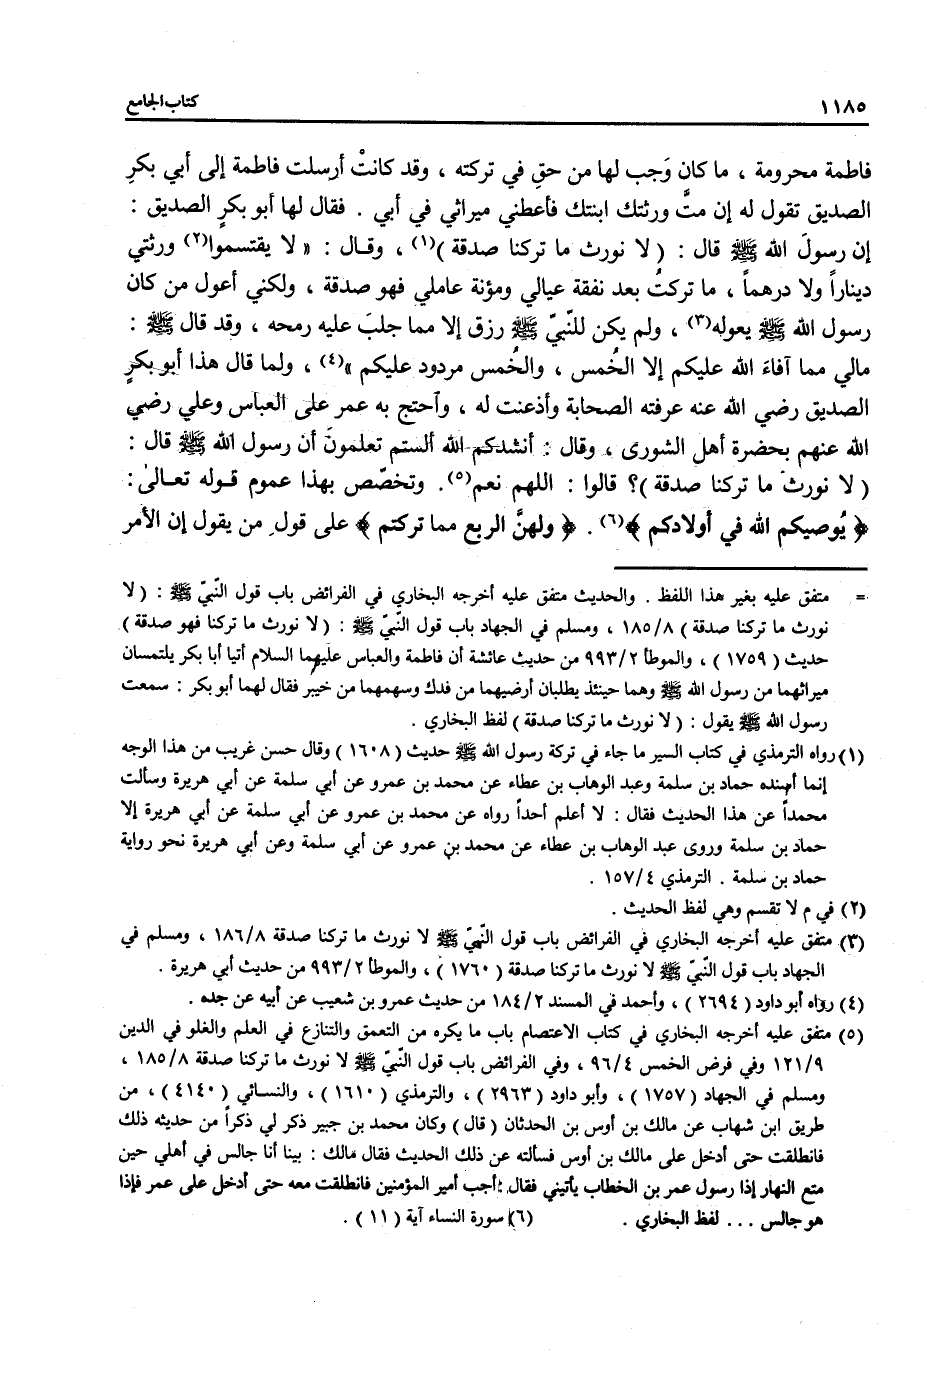 ١١٨٥ كتاب الجامع
فاطمة محرومة ، ما كان وَجب لها من حقٍ في تركته ، وقد كانتْ أرسلت فاطمة إلى أبي بكرٍ
الصديق تقول له إن متَّ ورثتك ابنتك فأعطني ميراثي في أبي . فقال لها أبو بكرٍ الصديق :
إن رسولَ الله ﷺ قال : ( لا نورث ما تركنا صدقة )(١) ، وقـال : « لا يقتسموا(٢) ورثتي
ديناراً ولا درهماً ، ما تركتُ بعد نفقة عيالي ومؤنة عاملي فهو صدقة ، ولكني أعول من كان
رسول الله ﷺ يعوله(٣) ، ولم يكن للنّبيّ ﷺ رزق إلا مما جلبَ عليه رمحه ، وقد قال ﷺ :
مالي مما آفاءَ الله عليكم إلا الخُمس ، والخُمس مردود عليكم »(٤) ، ولما قال هذا أبو بكرٍ
الصديق رضي الله عنه عرفته الصحابة وأذعنت له ، وآحتج به عمر على العباس وعلي رضي
الله عنهم بحضرة أهل الشورى ، وقال : أنشدكم الله ألستم تعلمونَ أن رسول الله ﷺ قال :
( لا نورث ما تركنا صدقة )؟ قالوا : اللهم نعم(٥). وتخصّص بهذا عموم قـوله تعـالىٰ :
﴿ يُوصيكم الله في أولادكم ﴾(٦) . ﴿ ولهنَّ الربع مما تركتم ﴾ على قولِ من يقول إن الأمر
= متفق عليه بغير هذا اللفظ . والحديث متفق عليه أخرجه البخاري في الفرائض باب قول النّبيّ ﷺ : ( لا
نورث ما تركنا صدقة ) ١٨٥/٨ ، ومسلم في الجهاد باب قول النّبيّ ﷺ : ( لا نورث ما تركنا فهو صدقة )
حديث ( ١٧٥٩ ) ، والموطأ ٩٩٣/٢ من حديث عائشة أن فاطمة والعباس عليهما السلام أتيا أبا بكر يلتمسان
ميراثهما من رسول الله ﷺ وهما حينئذ يطلبان أرضيهما من فدك وسهمهما من خيبر فقال لهما أبو بكر : سمعت
رسول الله ﷺ يقول : ( لا نورث ما تركنا صدقة ) لفظ البخاري .
(١) رواه الترمذي في كتاب السير ما جاء في تركة رسول الله ﷺ حديث ( ١٦٠٨ ) وقال حسن غريب من هذا الوجه
إنما أسنده حماد بن سلمة وعبد الوهاب بن عطاء عن محمد بن عمرو عن أبي سلمة عن أبي هريرة وسألت
محمداً عن هذا الحديث فقال : لا أعلم أحداً رواه عن محمد بن عمرو عن أبي سلمة عن أبي هريرة إلا
حماد بن سلمة وروى عبد الوهاب بن عطاء عن محمد بن عمرو عن أبي سلمة وعن أبي هريرة نحو رواية
حماد بن سلمة . الترمذي ١٥٧/٤ .
(٢) في م لا تقسم وهي لفظ الحديث .
(٣) متفق عليه أخرجه البخاري في الفرائض باب قول النّبيّ ﷺ لا نورث ما تركنا صدقة ١٨٦/٨ ، ومسلم في
الجهاد باب قول النّبيّ ﷺ لا نورث ما تركنا صدقة ( ١٧٦٠ ) ، والموطأ ٩٩٣/٢ من حديث أبي هريرة .
(٤) رواه أبو داود ( ٢٦٩٤ ) ، وأحمد في المسند ١٨٤/٢ من حديث عمرو بن شعيب عن أبيه عن جده .
(٥) متفق عليه أخرجه البخاري في كتاب الاعتصام باب ما يكره من التعمق والتنازع في العلم والغلو في الدين
١٢١/٩ وفي فرض الخمس ٩٦/٤ ، وفي الفرائض باب قول النّبيّ ﷺ لا نورث ما تركنا صدقة ١٨٥/٨ ،
ومسلم في الجهاد ( ١٧٥٧ ) ، وأبو داود ( ٢٩٦٣ ) ، والترمذي ( ١٦١٠ ) ، والنسائي ( ٤١٤٠ ) ، من
طريق ابن شهاب عن مالك بن أوس بن الحدثان ( قال ) وكان محمد بن جبير ذكر لي ذكراً من حديثه ذلك
فانطلقت حتى أدخل على مالك بن أوس فسألته عن ذلك الحديث فقال مالك : بينا أنا جالس في أهلي حين
متع النهار إذا رسول عمر بن الخطاب يأتيني فقال : أجب أمير المؤمنين فانطلقت معه حتى أدخل على عمر فإذا
هو جالس ... لفظ البخاري . (٦) سورة النساء آية ( ١١ ) .